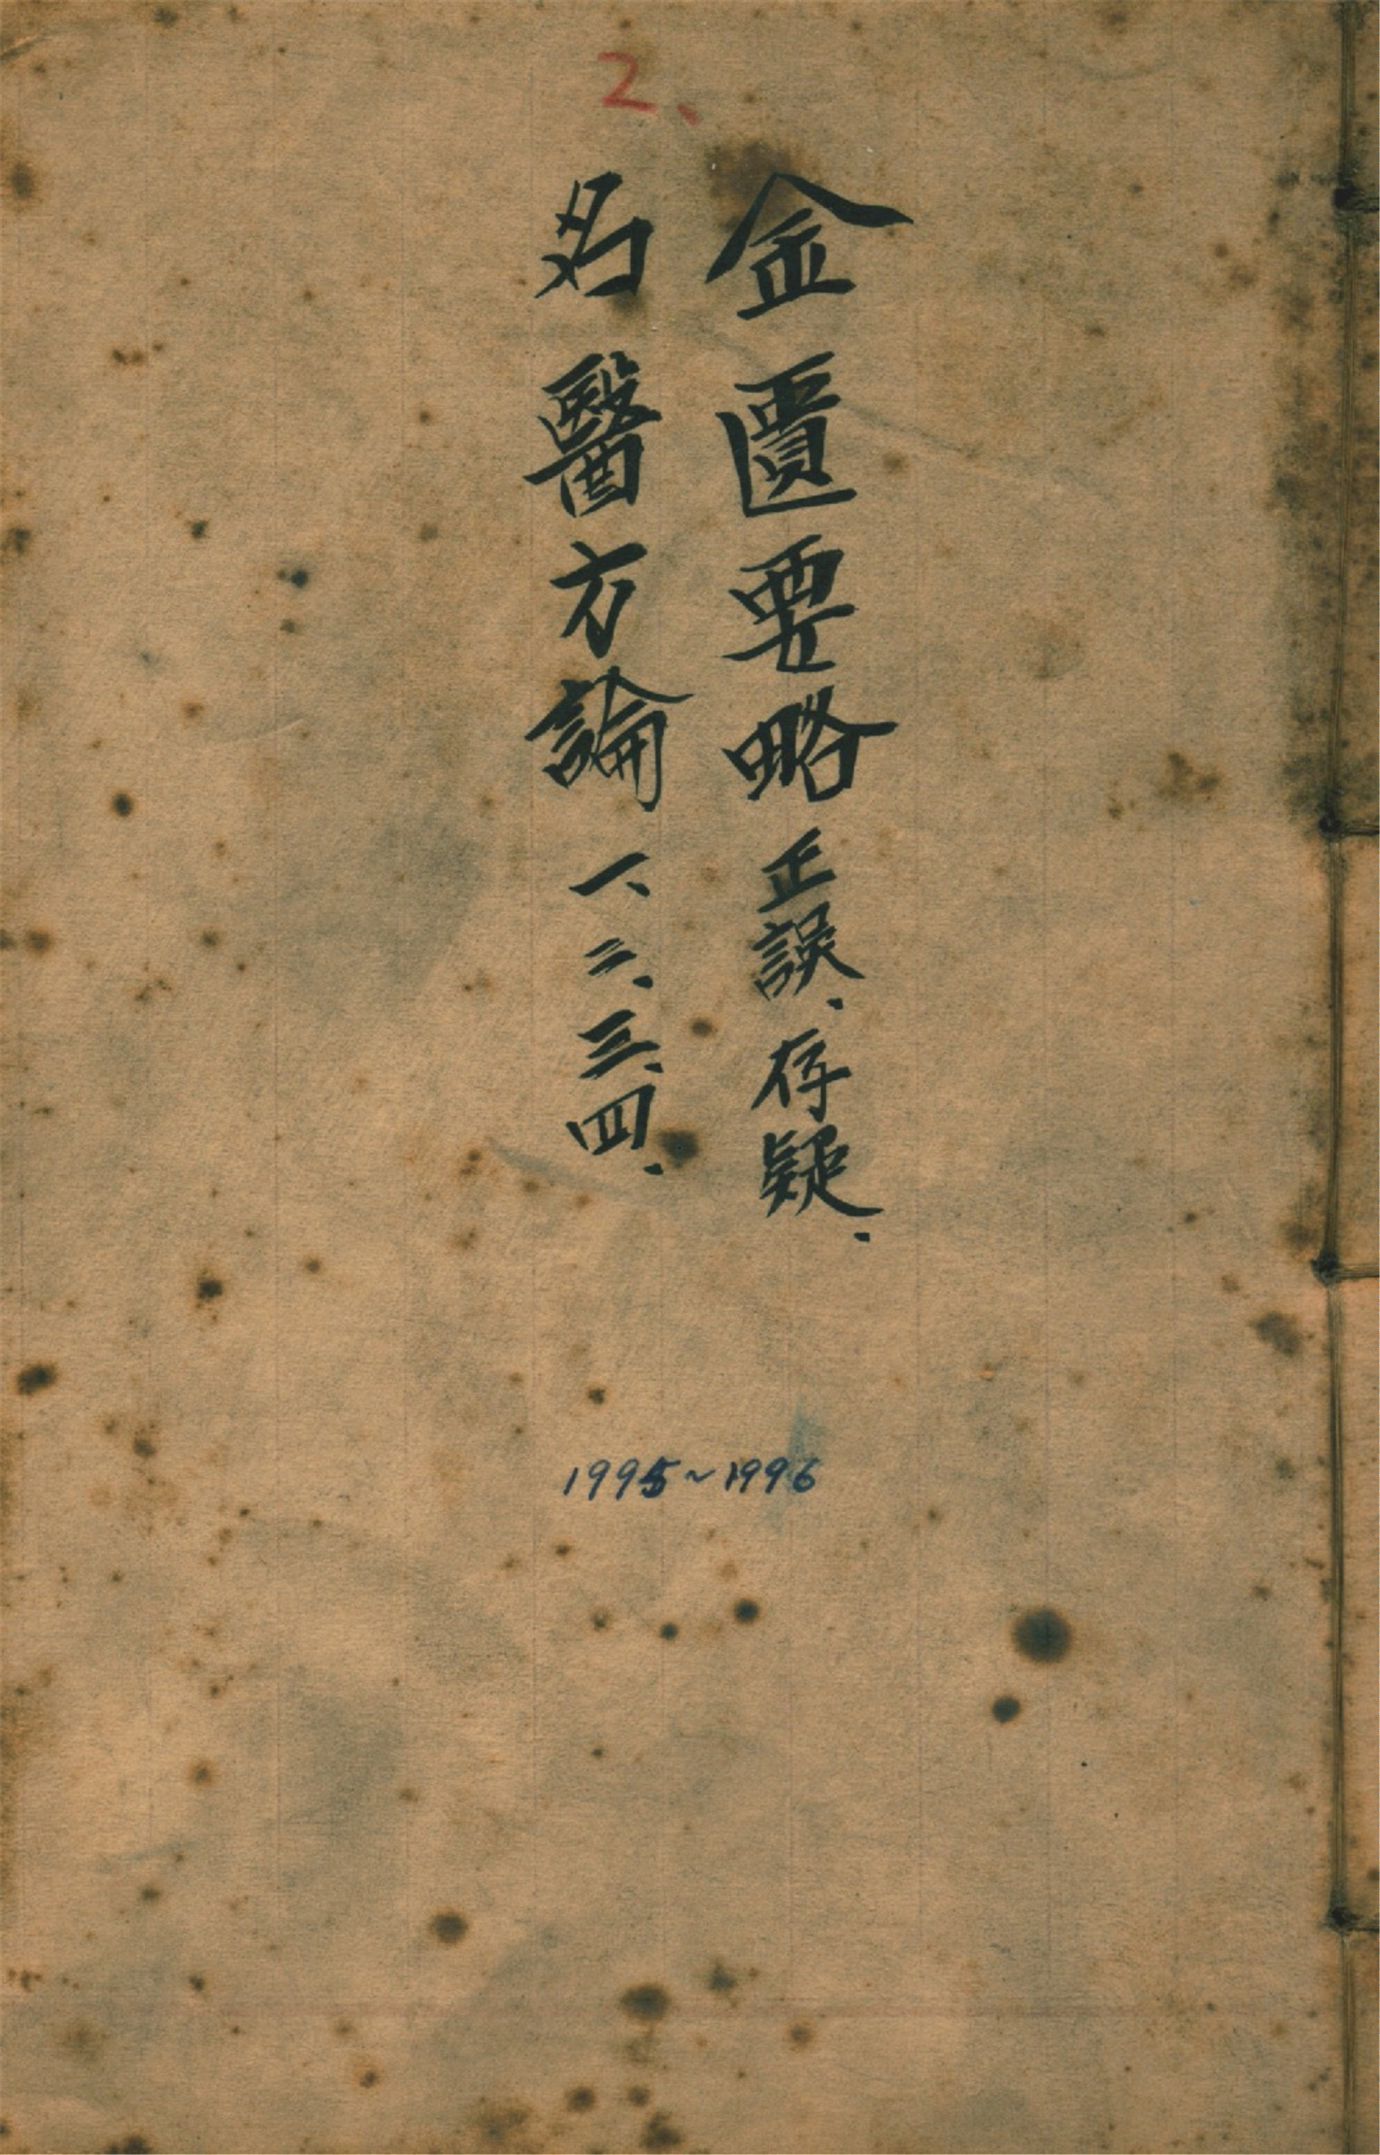 2、
金匱要略正誤、存疑、
名醫方論一、二、三、四、
1995~1996